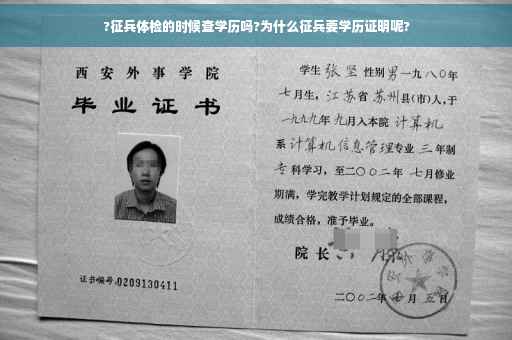 ?征兵体检的时候查学历吗?为什么征兵要学历证明呢?
西安外事学院
毕业证书
证书编号:0209130411
学生 张坚 性别 男 一九八〇年
七月生，江苏省 苏州县(市)人,于
一九九九年 九月入本院 计算机
系 计算机信息管理专业 三 年制
专 科学习，至二〇〇二年 七月修业
期满，学完教学计划规定的全部课程，
成绩合格，准予毕业。
院长
二〇〇二年 月 五日